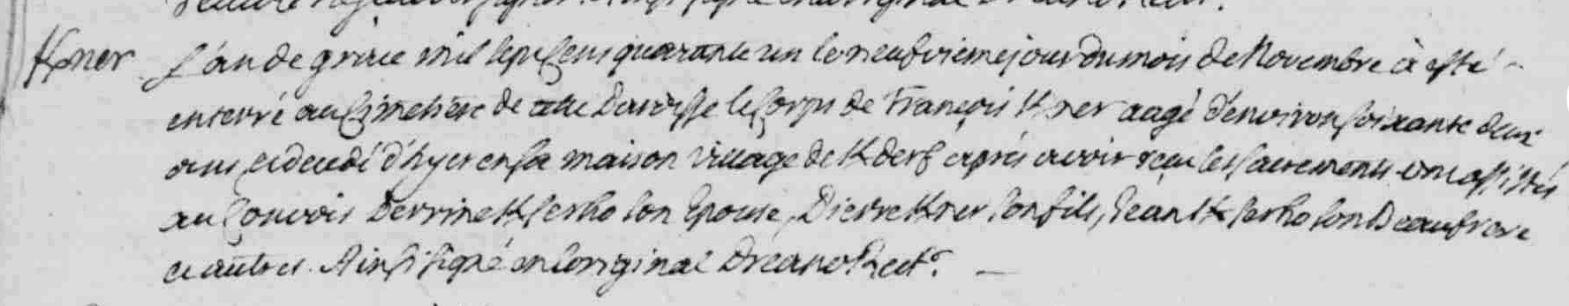 Kner L'an de grace mil sept cens quarante un le neufvieme jour du mois de Novembre à esté
enterré au Cimetiere de cette Paroisse le Corps de François Kner aagé d'environ soixante deux
ans, decedé d'hyer en sa maison village de Kderf après avoir reçu les sacrements, ont assistés
au Convois Perrine K serho son Epouse, Pierre Kner son fils, Jean K serho son Beaufrere
et autres. Ainsi signé en l'original Dreano Rectr. —